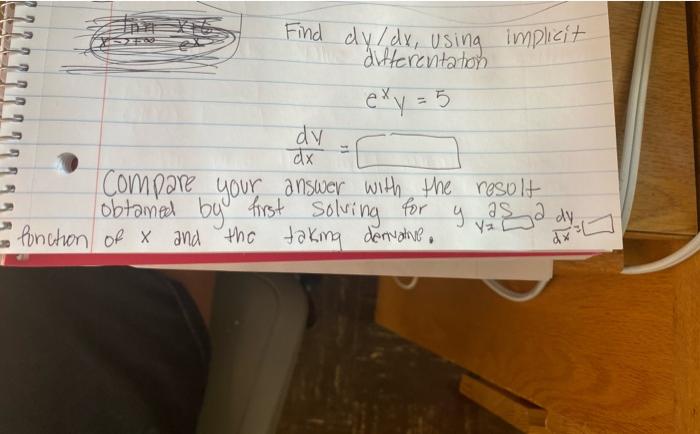 lim x+6
x→+∞ ex
Find dy/dx, using implicit
differentation
e^x y = 5
dy
dx
=
Compare your answer with the result
obtained by first solving for y as a
y= dy
dx =
function of x and the taking derivative.